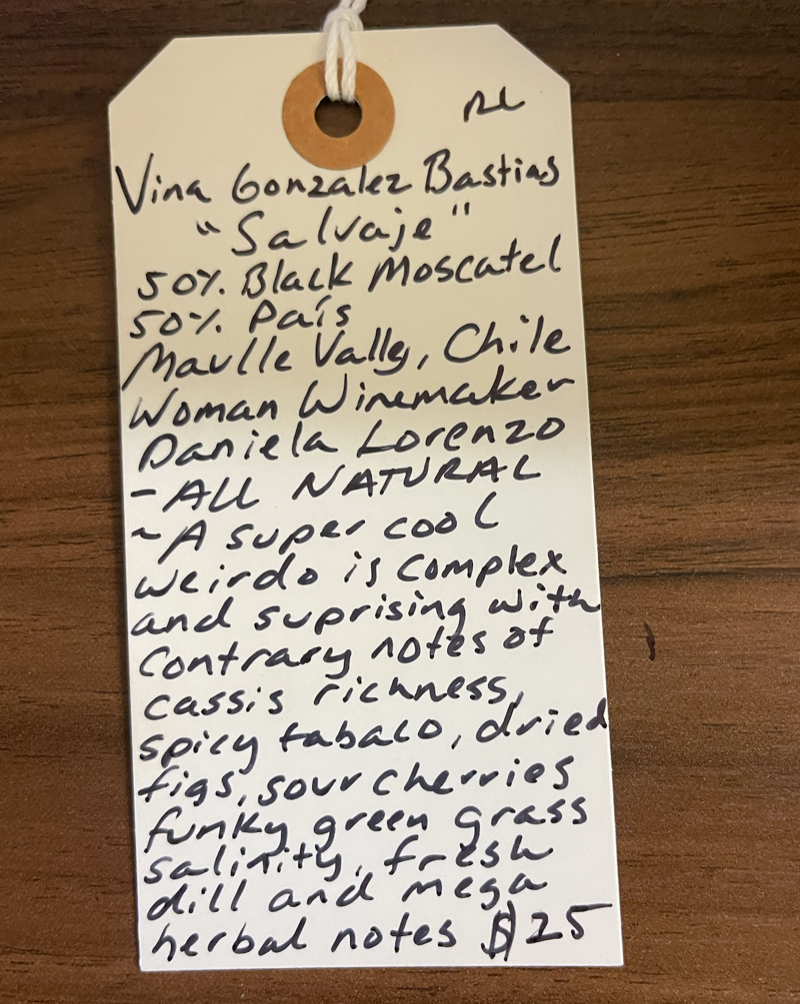 RL
Vina Gonzalez Bastias
"Salvaje"
50% Black Moscatel
50% País
Maulle Vally, Chile
Woman Winemaker
Daniela Lorenzo
- ALL NATURAL
~ A super cool
weirdo is complex
and suprising with
contrary notes of
cassis richness,
spicy tabaco, dried
figs, sour cherries
funky green grass
salinity, fresh
dill and mega
herbal notes $25